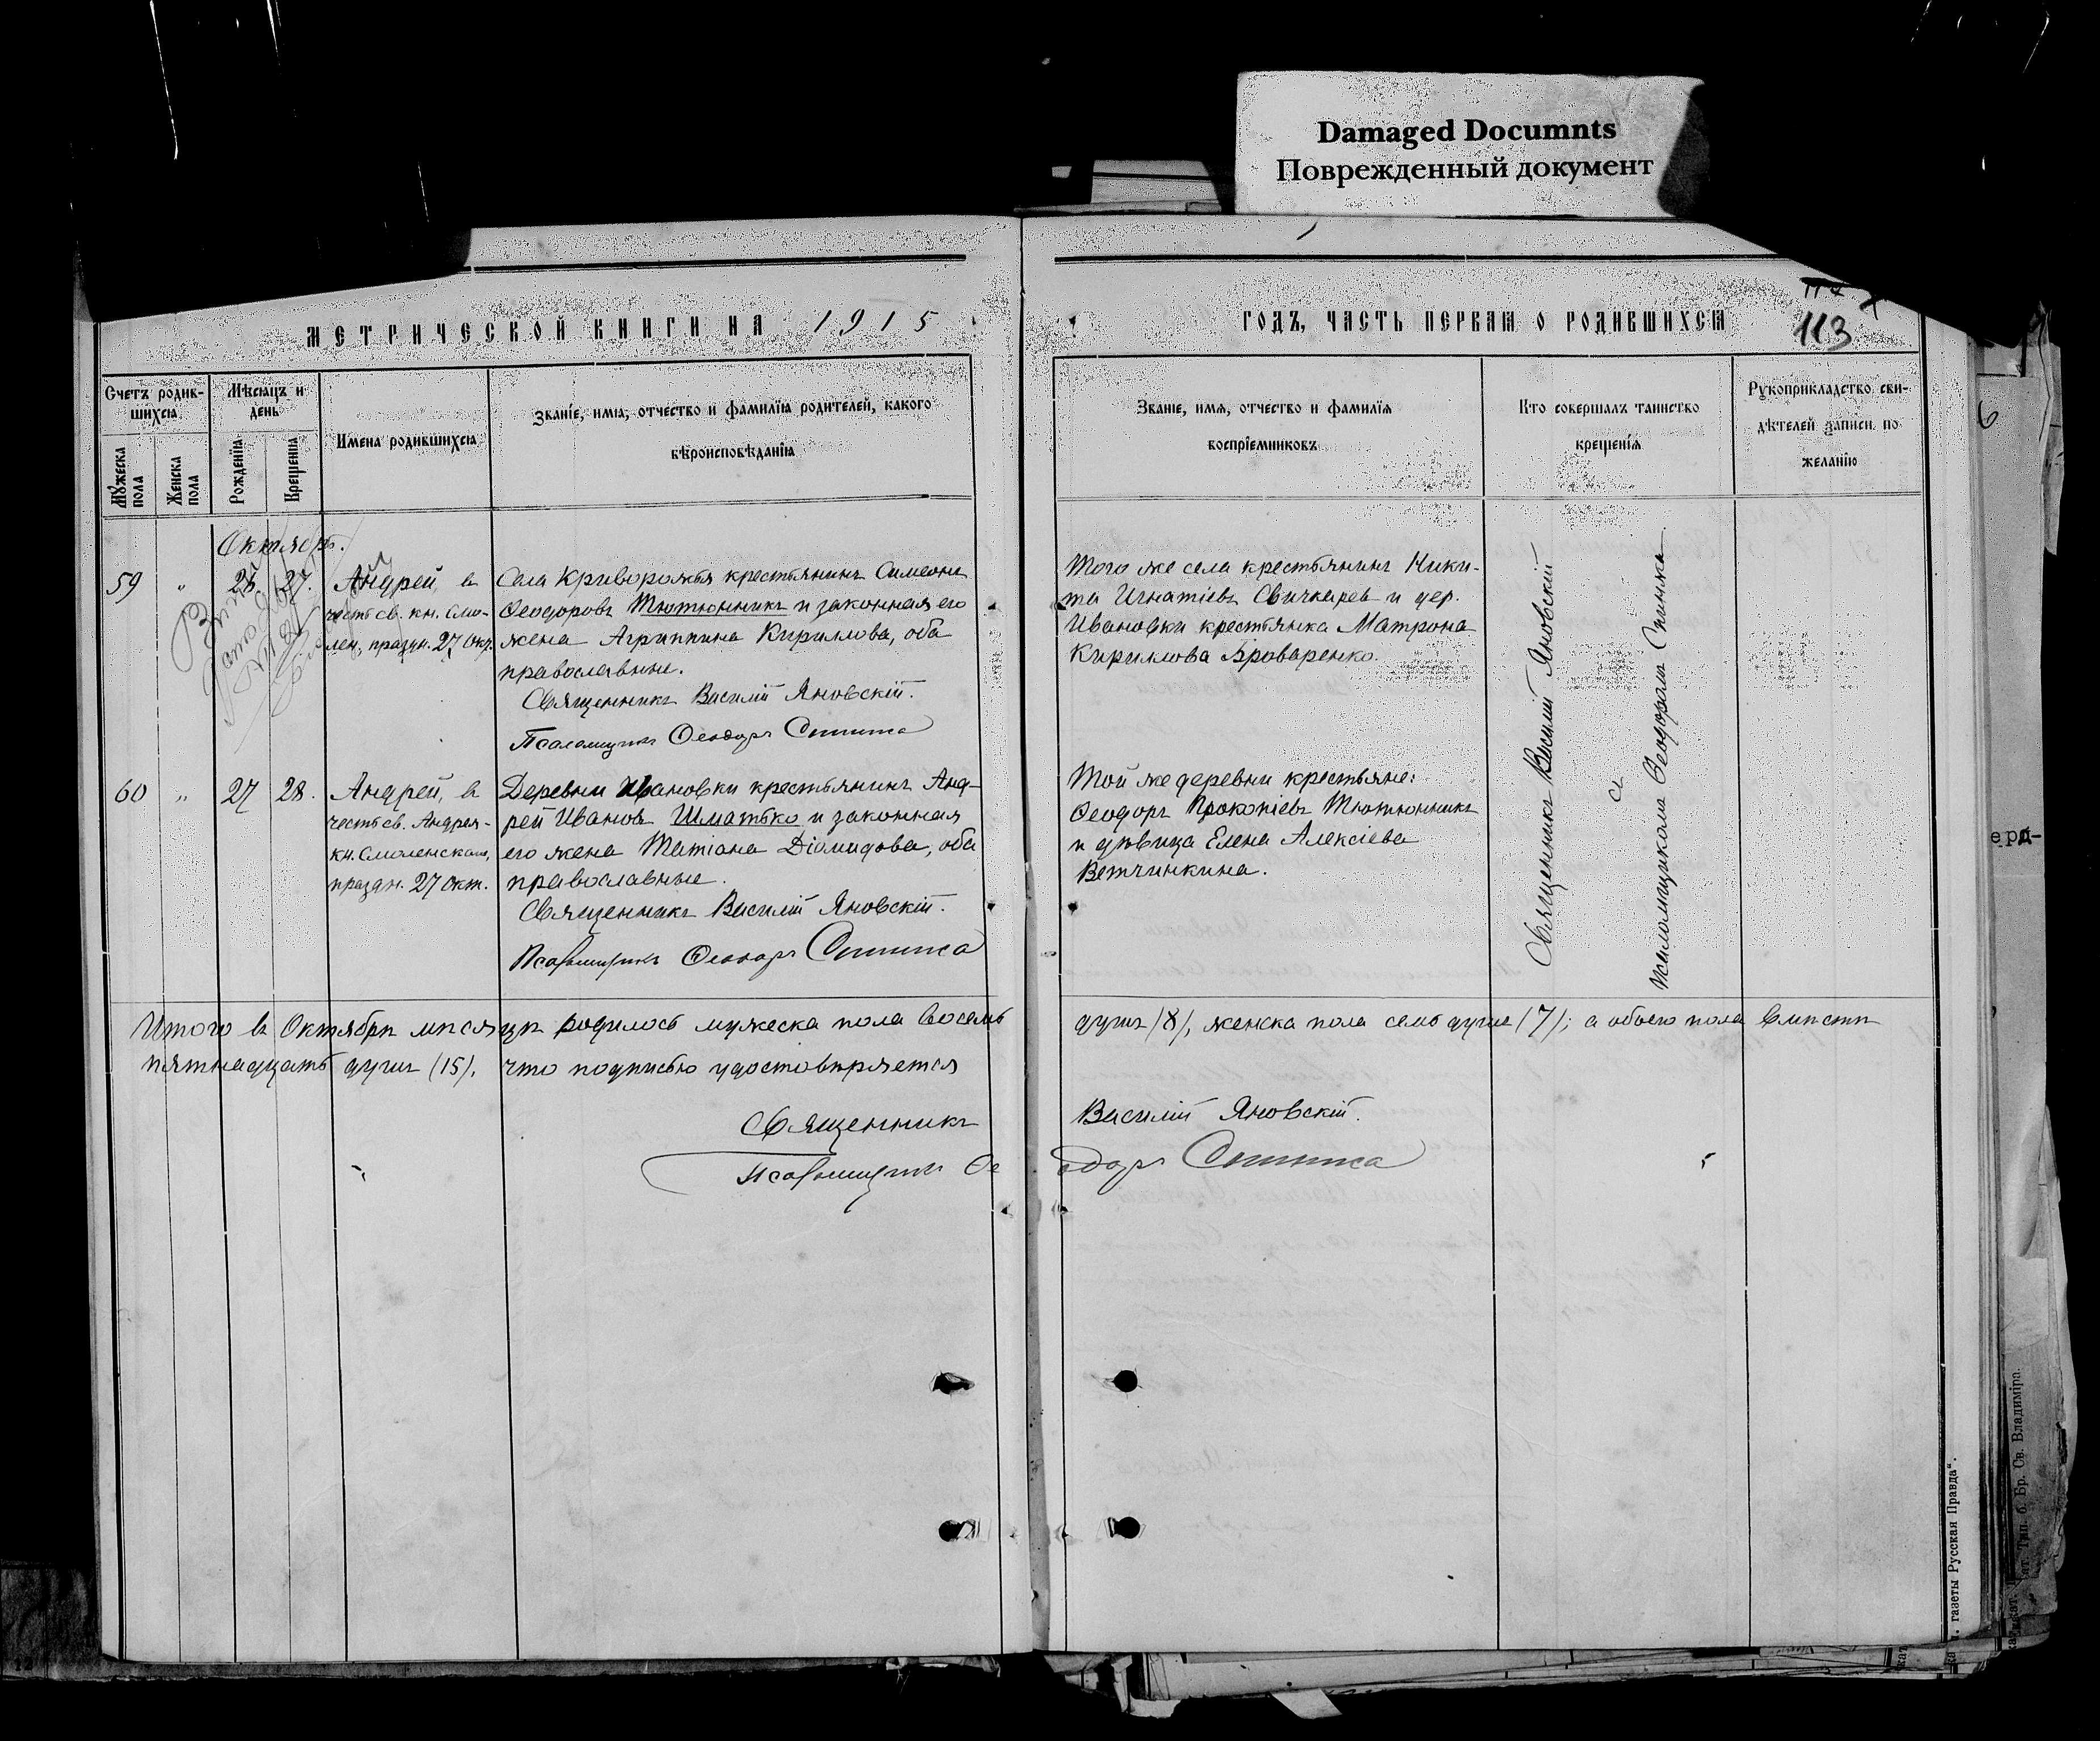 Damaged Documnts
Поврежденный документ
МЕТРИЧЕСКОЙ КНИГИ НА 1915
ГОДЪ, ЧАСТЬ ПЕРВАЯ О РОДИВШИХСЯ
113
Счетъ родив-
шихся
Мужеска
пола
Женска
пола
Мѣсяцъ и
день
Рожденія
Крещенія
Имена родившихся
Званіе, имя, отчество и фамилія родителей, какого
вѣроисповѣданія
Званіе, имя, отчество и фамилія
воспріемниковъ
Кто совершалъ таинство
крещенія
Рукоприкладство сви-
дѣтелей записи по
желанію
Октябрь.
59 " 26. 27.
Андрей, въ
честь св. кн. Смо-
лен., праздн. 27 Окт.
Села Криворожья крестьянинъ Симеонъ
Ѳеодоровъ Тютюнникъ и законная его
жена Агриппина Кириллова, оба
православные.
Священникъ Василій Яновскій.
Псаломщикъ Ѳеодоръ Спинка
Того же села крестьянинъ Ники-
та Игнатіевъ Свичкарев и дер.
Ивановки крестьянка Матрона
Кириллова Броваренко.
60 " 27 28.
Андрей, въ
честь св. Андрея-
кн. Смоленскаго,
праздн. 27 Окт.
Деревни Ивановки крестьянинъ Анд-
рей Иванов Шматько и законная
его жена Татіана Діомидова, оба
православные.
Священникъ Василій Яновскій.
Псаломщикъ Ѳеодоръ Спинка
Той же деревни крестьяне:
Ѳеодоръ Прокопіевъ Тютюнникъ
и дѣвица Елена Алексіева
Ветчинкина.
Священникъ Василій Яновскій
съ
псаломщикомъ Ѳеодоромъ Спинка.
Итого въ Октябрѣ мѣсяцѣ родилось мужеска пола восемь душъ (8), женска пола семь душъ (7); а обоего пола вмѣстѣ
пятнадцать душъ (15). что подписью удостовѣряется
Священникъ Василій Яновскій.
Псаломщикъ Ѳеодоръ Спинка
6
ерд-
газеты Русская Правда".
Тип. б. Бр. Св. Владиміра.